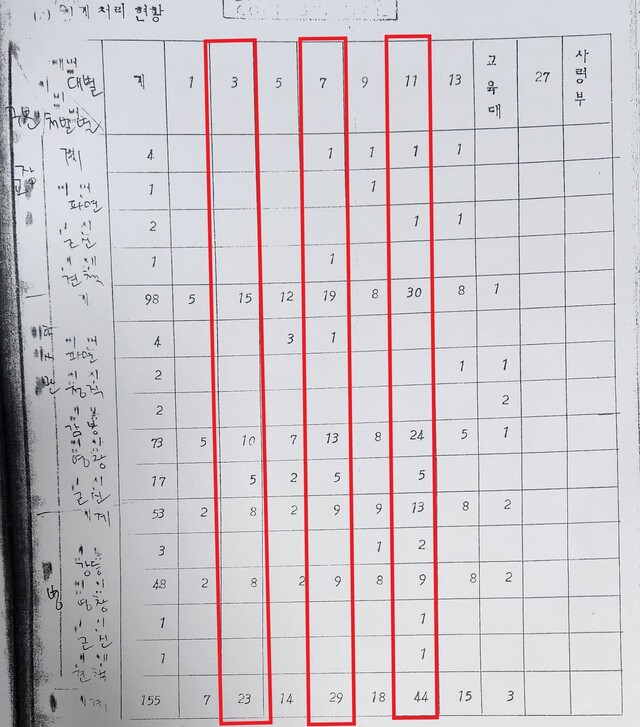 징계 처리 현황
대별 계 1 3 5 7 9 11 13 교육대 27 사령부
계 4 1 1 1 1
파면 1 1
근신 2 1 1
견책 1 1
계 98 5 15 12 19 8 30 8 1
파면 4 3 1
2 1 1
감봉 2 2
영창 73 5 10 7 13 8 24 5 1
근신 17 5 2 5 5
계 53 2 8 2 9 9 13 8 2
3 1 2
영창 48 2 8 2 9 8 9 8 2
근신 1 1
견책 1 1
계 155 7 23 14 29 18 44 15 3